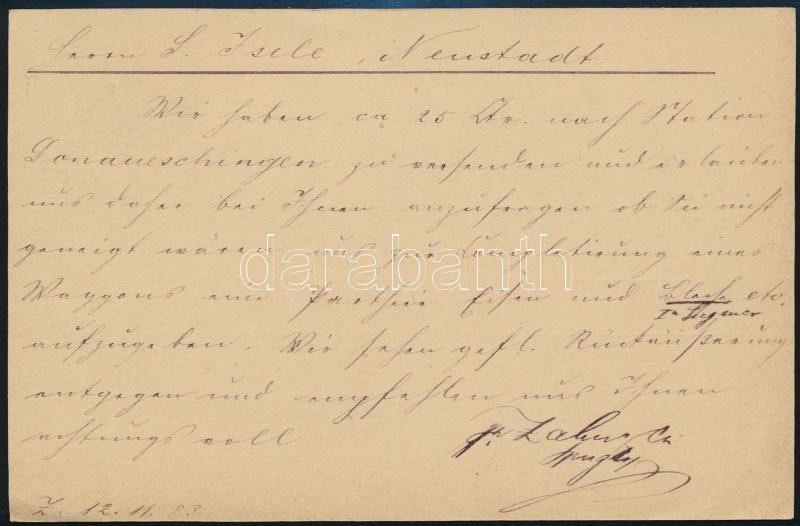 Herrn S. Isele, Neustadt
Wir haben ca 25 Ctr. nach Station
Donaueschingen zu versenden und erlauben
uns daher bei Ihnen anzufragen ob Sie nicht
geneigt wären uns zur Completirung eines
Waggons eine Parthie Eisen und Bleche etc.
Ia Siegener
aufzugeben. Wir sehen gefl. Rückäußerung
entgegen und empfehlen uns Ihnen
achtungsvoll
Zahn
12.11.83
darabanth